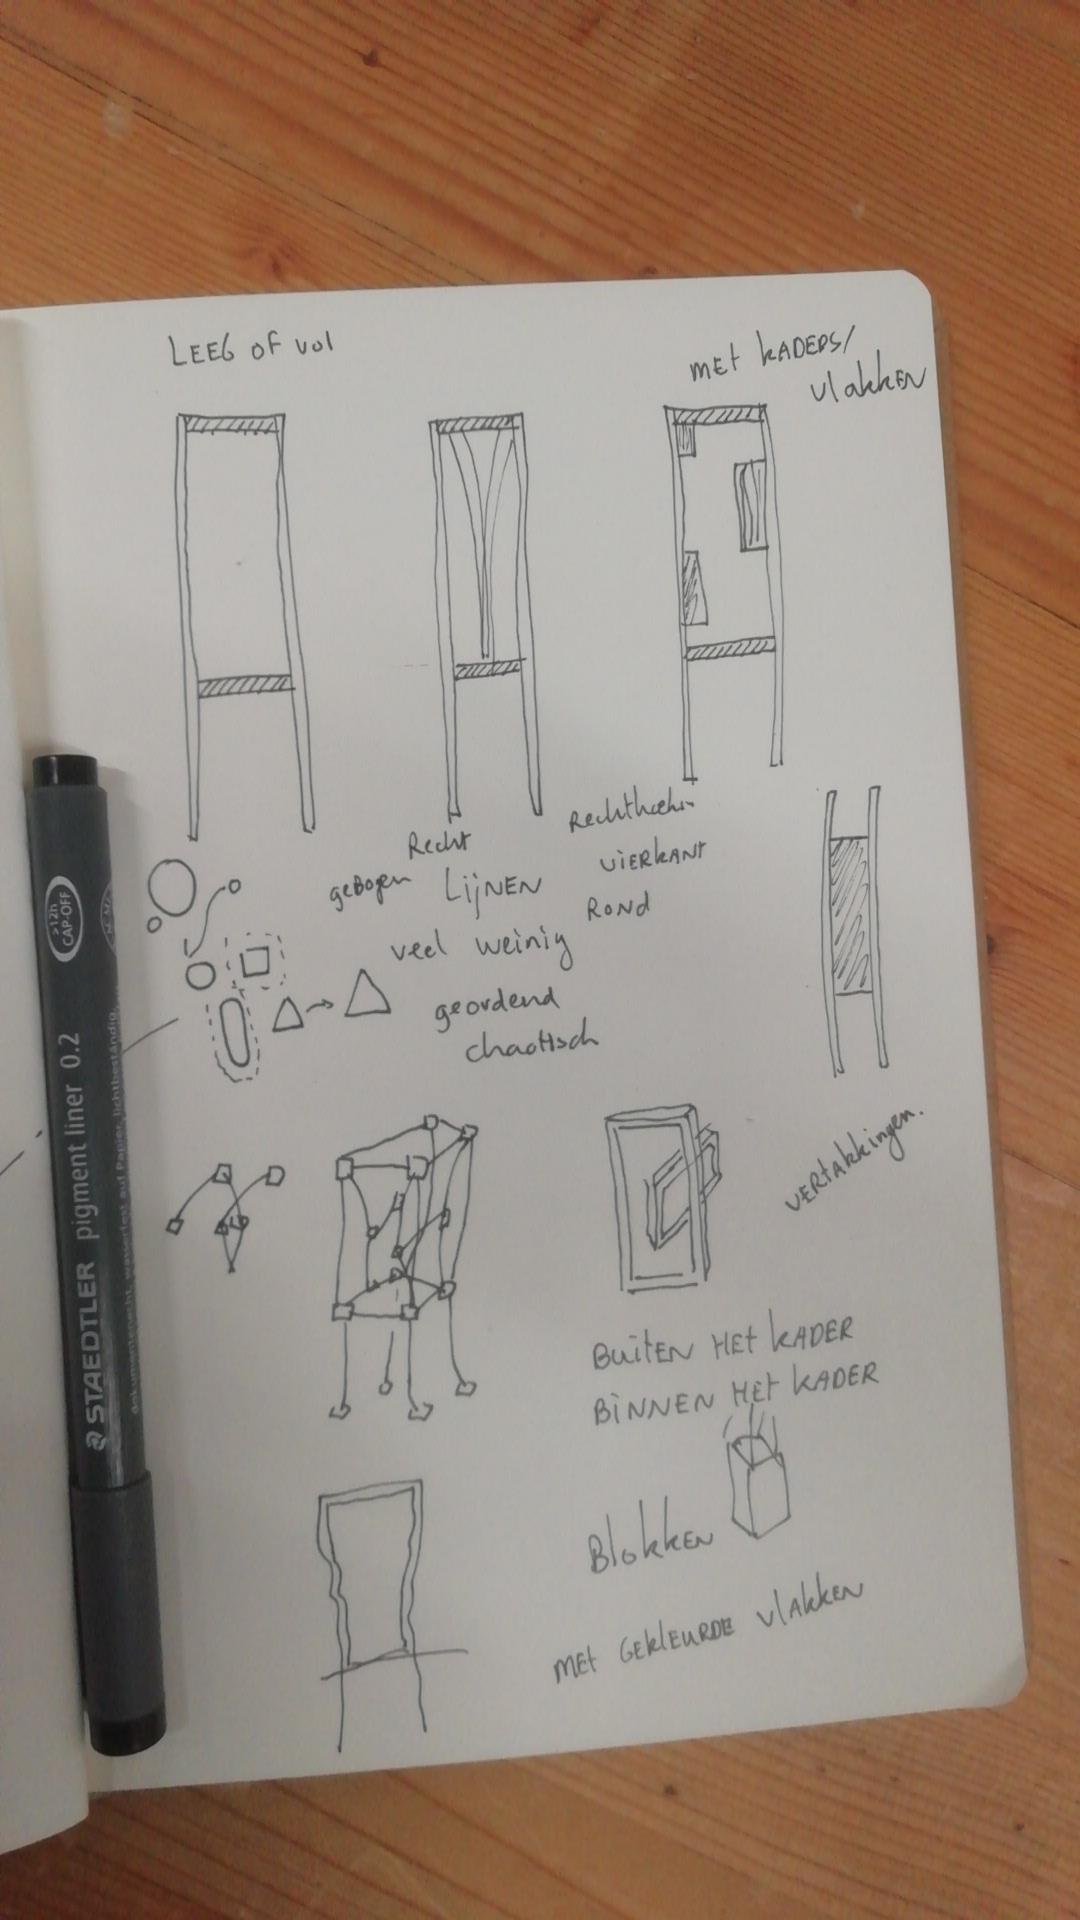 LEEG OF VOL
MET KADERS/
VLAKKEN
Recht
geBogen LijNEN
veel weinig
geordend
chaotisch
ViERKANT
ROND
VERTAKKingen.
BuitEN HEt KADER
BiNNEN HET KADER
BlokkEN
MEt GEKlEURDE VlAkkEN
STAEDTLER pigment liner 0.2
>12h
CAP-OFF